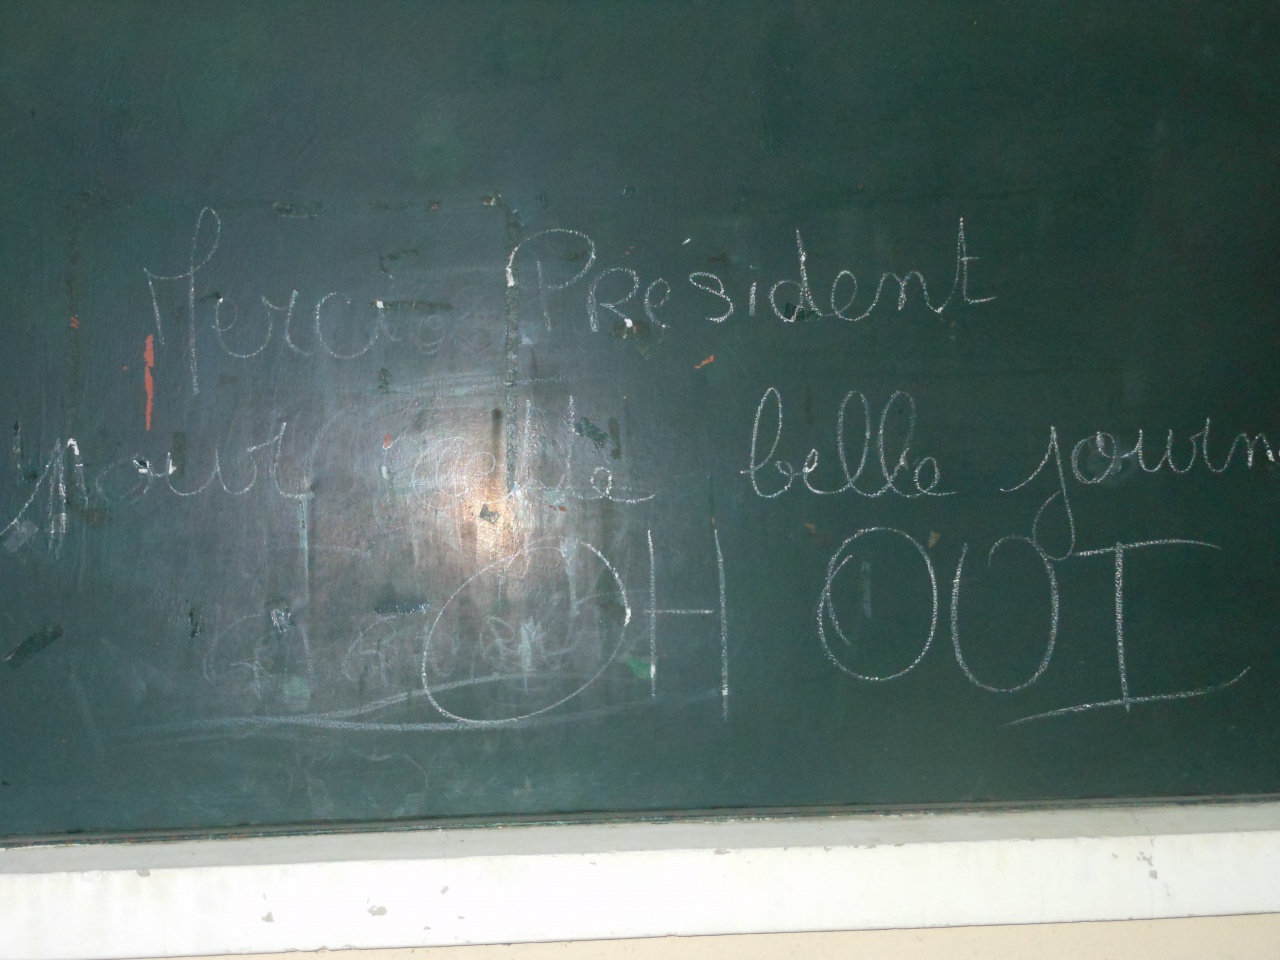 Merci Président
pour cette belle journ
OH OUI